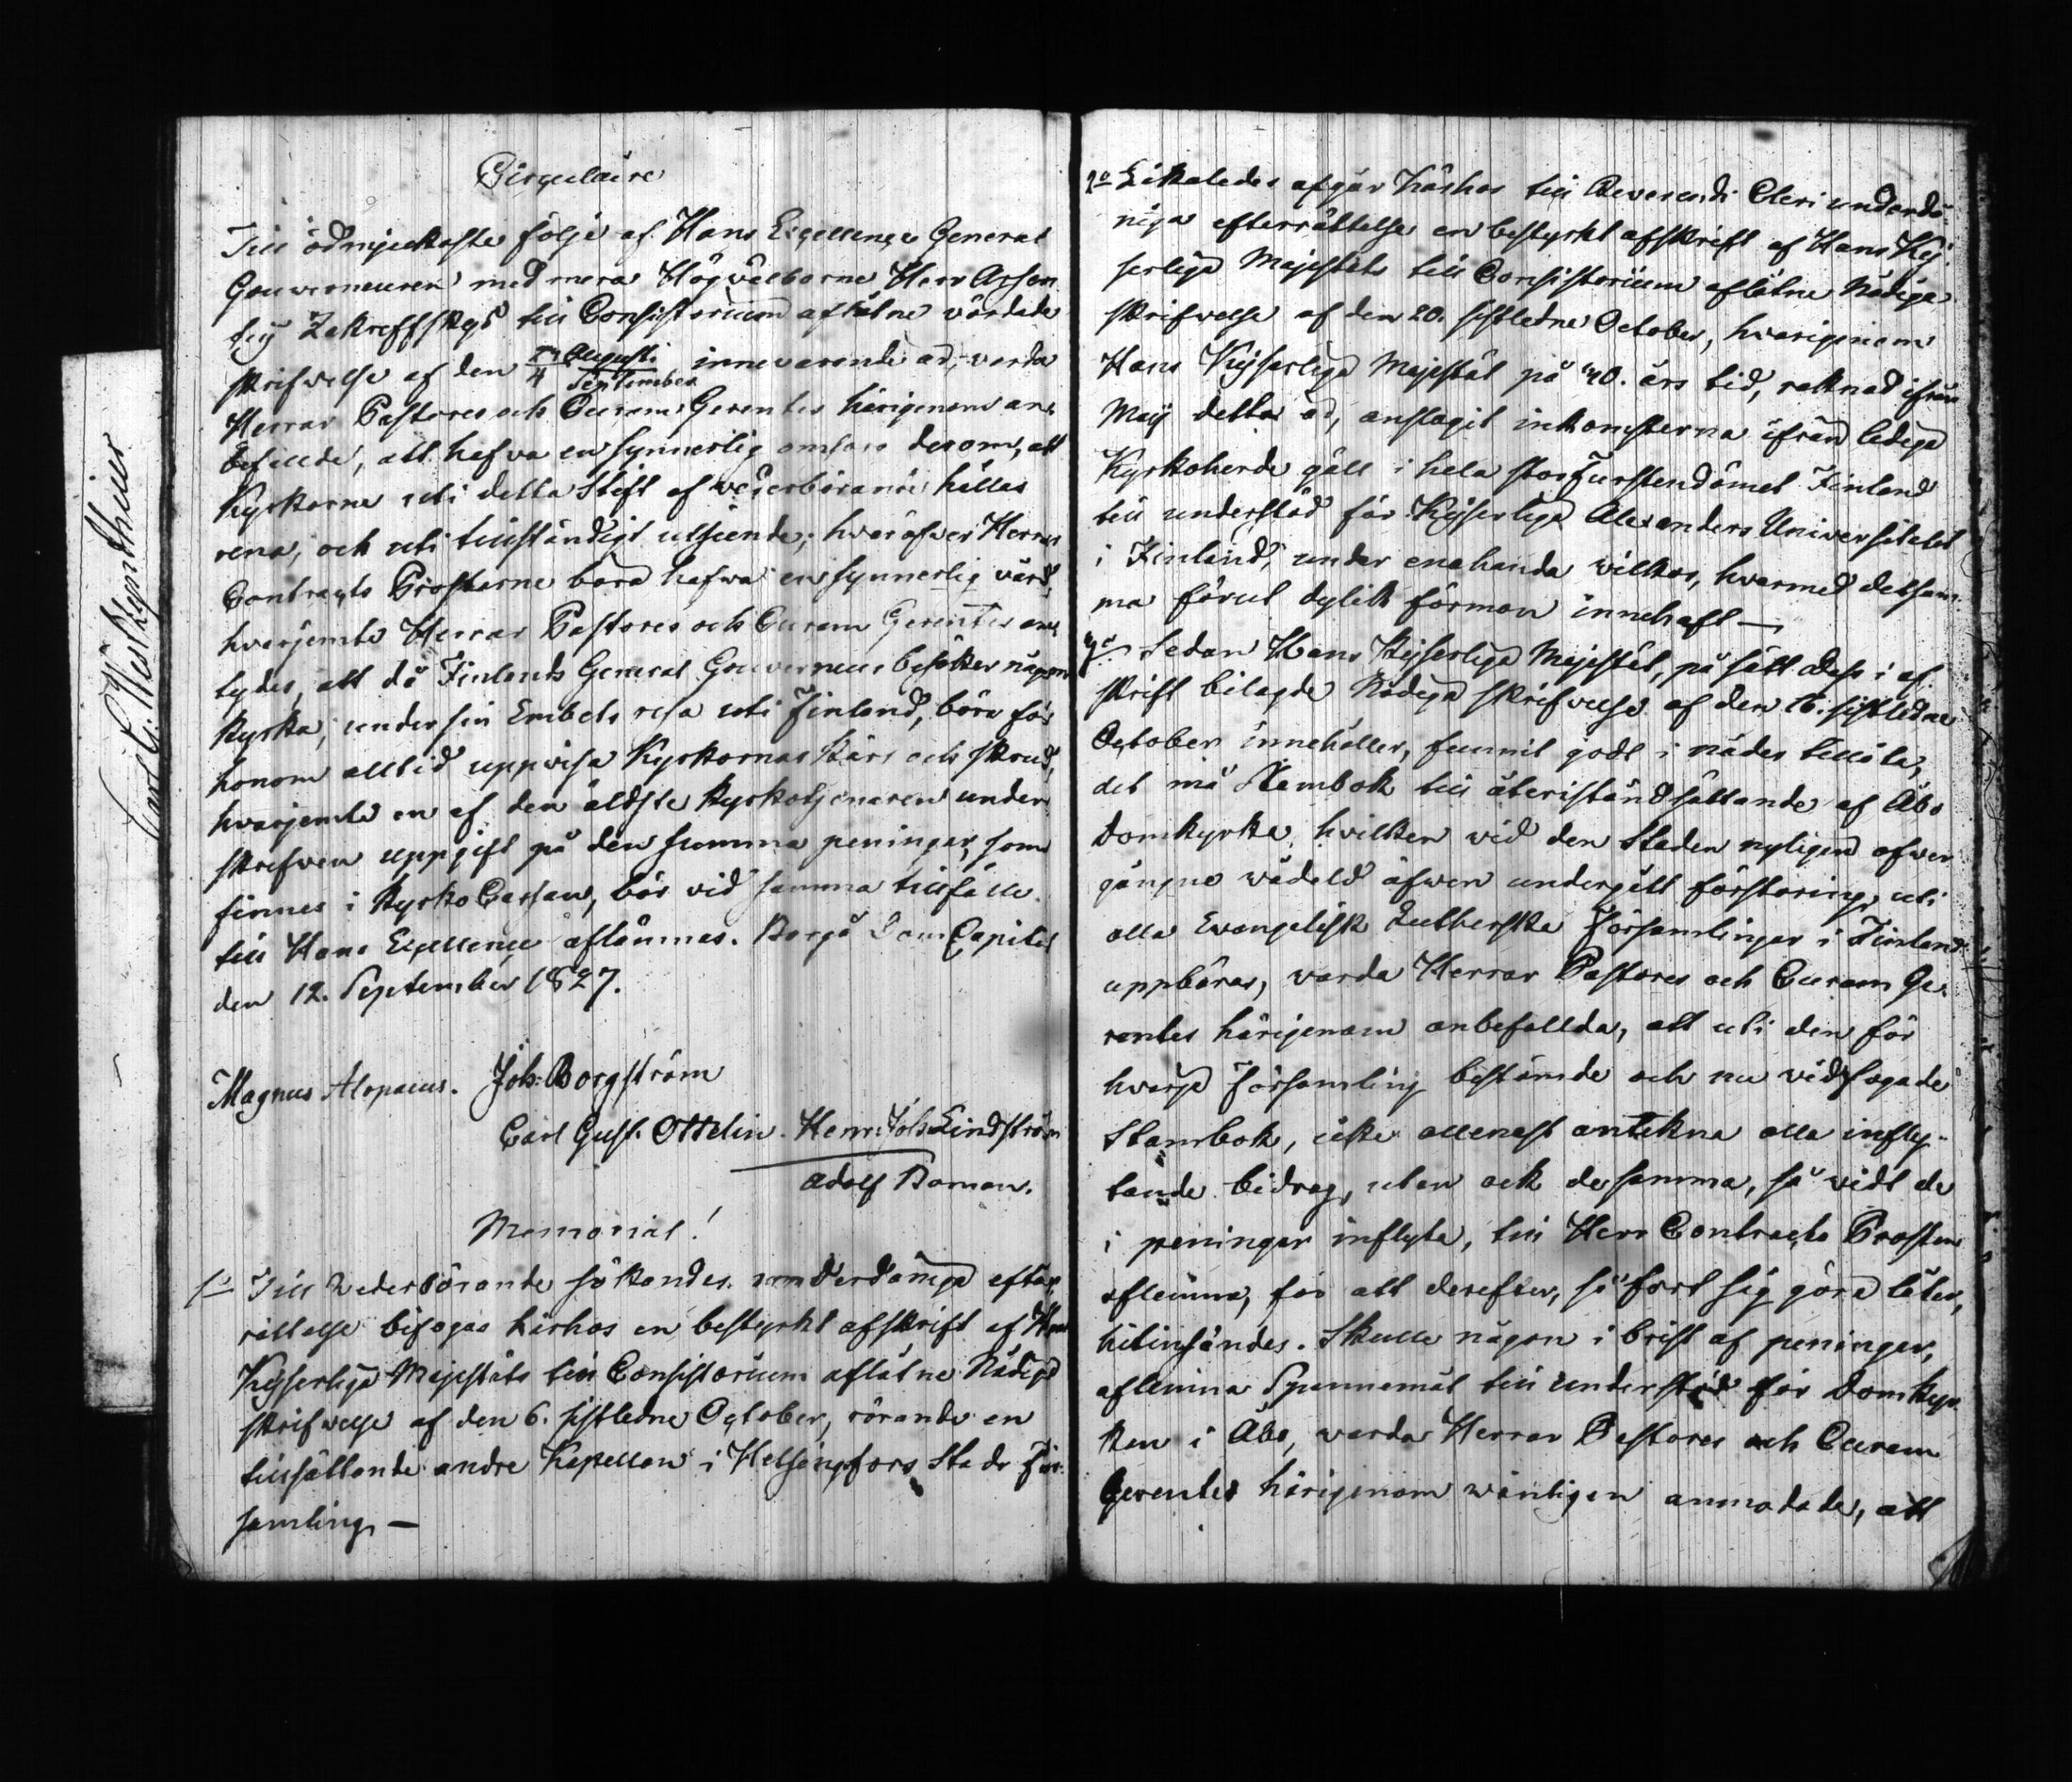 Cirqulaire
Till ödmjukaste följe af Hans Exellence General
Gouverneuren med mera Högvälborne Herr Arsen
tij Zakreffskys till Consistorium aflåtne vördade
skrifwelse af den Augusti innevarande år, varda
4 September
Herrar Pastores och Curam Gerentes härigenom an
befallde, att hafva en synnerlig omsorg derom, att
Kyrkorne uti detta Stift af wederbörande hållas
rena, och uti tillständigt utseende; hvaröfwer Herrar
Contracts Prostarne böra hafwa en synnerlig vård,
hvarjemte Herrar Pastores och Curam Gerentes an
tydes, att då Finlands General Gouverneur besöker någon
kyrka, under sin Embets resa uti Finland, böra för
honom alltid uppvisa Kyrkornas kärl och skrud,
hvarjemte en af den äldste kyrkotjenaren under
skrefwen uppgift på den summa peningar, som
finnes i Kyrko Cassan, bör vid samma tillfälle
till Hans Exellence aflämnas. Borgå Dom Capitel
den 12. September 1827.
Magnus Alopæus. Joh: Borgström
Carl Gust. Ottelin. Henr: Joh: Lindström
Adolf Roman.
Memorial!
1o Till Wederbörande sökandes underdåniga efter
rättelse bifogas härhos en bestyrkt afskrift af Hans
Kejserliga Majestäts till Consistorium aflåtne Nådiga
skrifwelse af den 6. sistledne October, rörande en
tillsättande andre Kapellan i Helsingfors Stads För
samling. —
2o Likaledes afgår härhos till Reverendi Cleri underdå
niga efterrättelse en bestyrkt afskrift af Hans Kej
serliga Majestäts till Consistorium aflåtne Nådiga
skrifwelse af den 20. sistledne October, hvarigenom
Hans Kejserliga Majestät på 40. års tid, räknad ifrån
Maij detta år, anslagit inkomsterna ifrån lediga
Kyrkoherde gäll i hela storFurstendömet Finland
till understöd för Kejserliga Alexanders Universitetet
i Finland, under enahanda wilkor, hvarmed detsam
ma förut dylik förmon innehaft —
3o Sedan Hans Kejserliga Majestät, på sätt dess i af
skrift bilagde Nådiga skrifwelse af den 16. sistledne
October innehåller, funnit godt i nåder tillåta,
det må Stambok till återiståndsättande af Åbo
Domkyrka, hvilken vid den Staden nyligen öfwer
gångne wådeld äfwen undergått förstöring, uti
alla Evangelisk Lutherska Församlingar i Finland
uppbäras, warda Herrar Pastores och Curam Ge
rentes härigenom anbefallda, att uti den för
hvarje Församling bestämde och nu vidfogade
Stambok, icke allenast antekna alla infly-
tande bidrag, utan ock desamma, så vidt de
i peningar inflyta, till Herr Contracts Prosten
aflemna, för att derefter, så fort sig göra låter,
hitinsändes. Skulle någon i brist af peningar,
aflemna Spannemål till understöd för Domkyr
kan i Åbo, warda Herrar Pastores och Curam
Gerentes härigenom wänligen anmodade, att
Carl G. Westzynthius